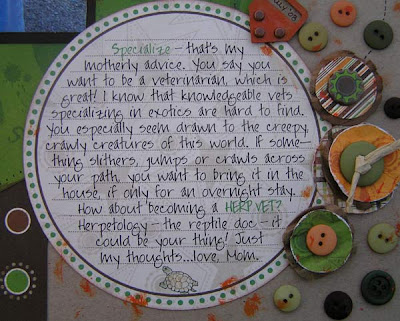 Specialize – that's my
motherly advice. You say you
want to be a veterinarian, which is
great! I know that knowledgeable vets
specializing in exotics are hard to find.
You especially seem drawn to the creepy,
crawly creatures of this world. If some-
thing slithers, jumps or crawls across
your path, you want to bring it in the
house, if only for an overnight stay.
How about becoming a HERP VET?
Herpetology – the reptile doc – it
could be your thing! Just
my thoughts...love, Mom.